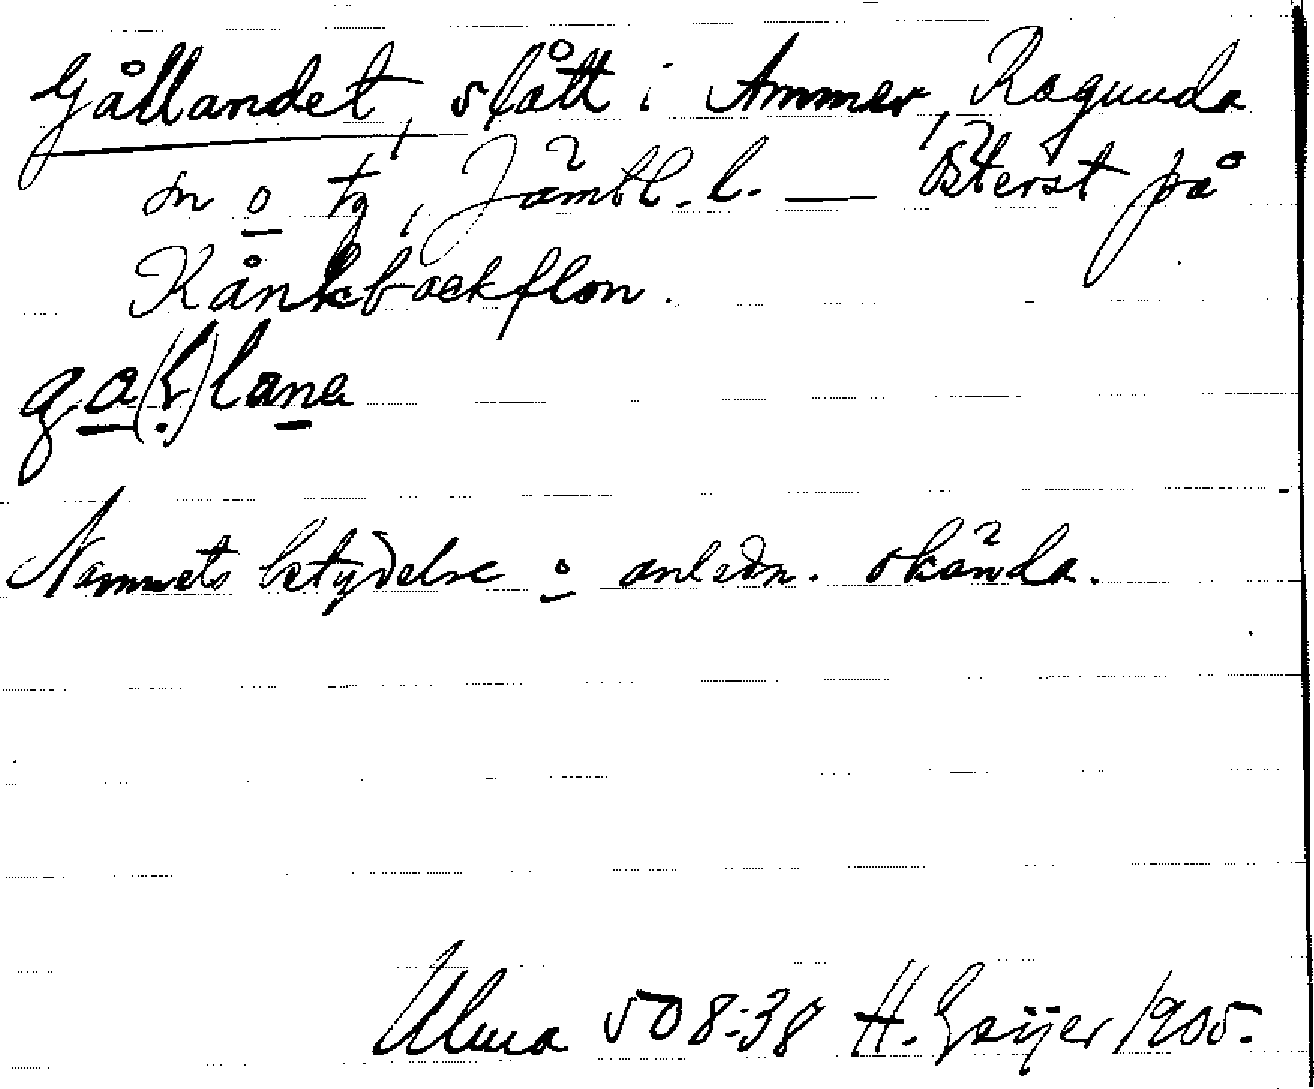 Gållandet, slått i Ammer, Ragunda
sn o tg, Jämtl. l. — Österst på
Kånkbackflon.
ga(l)lana
Namnets betydelse o anledn. okända.
Ulma 508:38 H. Geijer 1905.